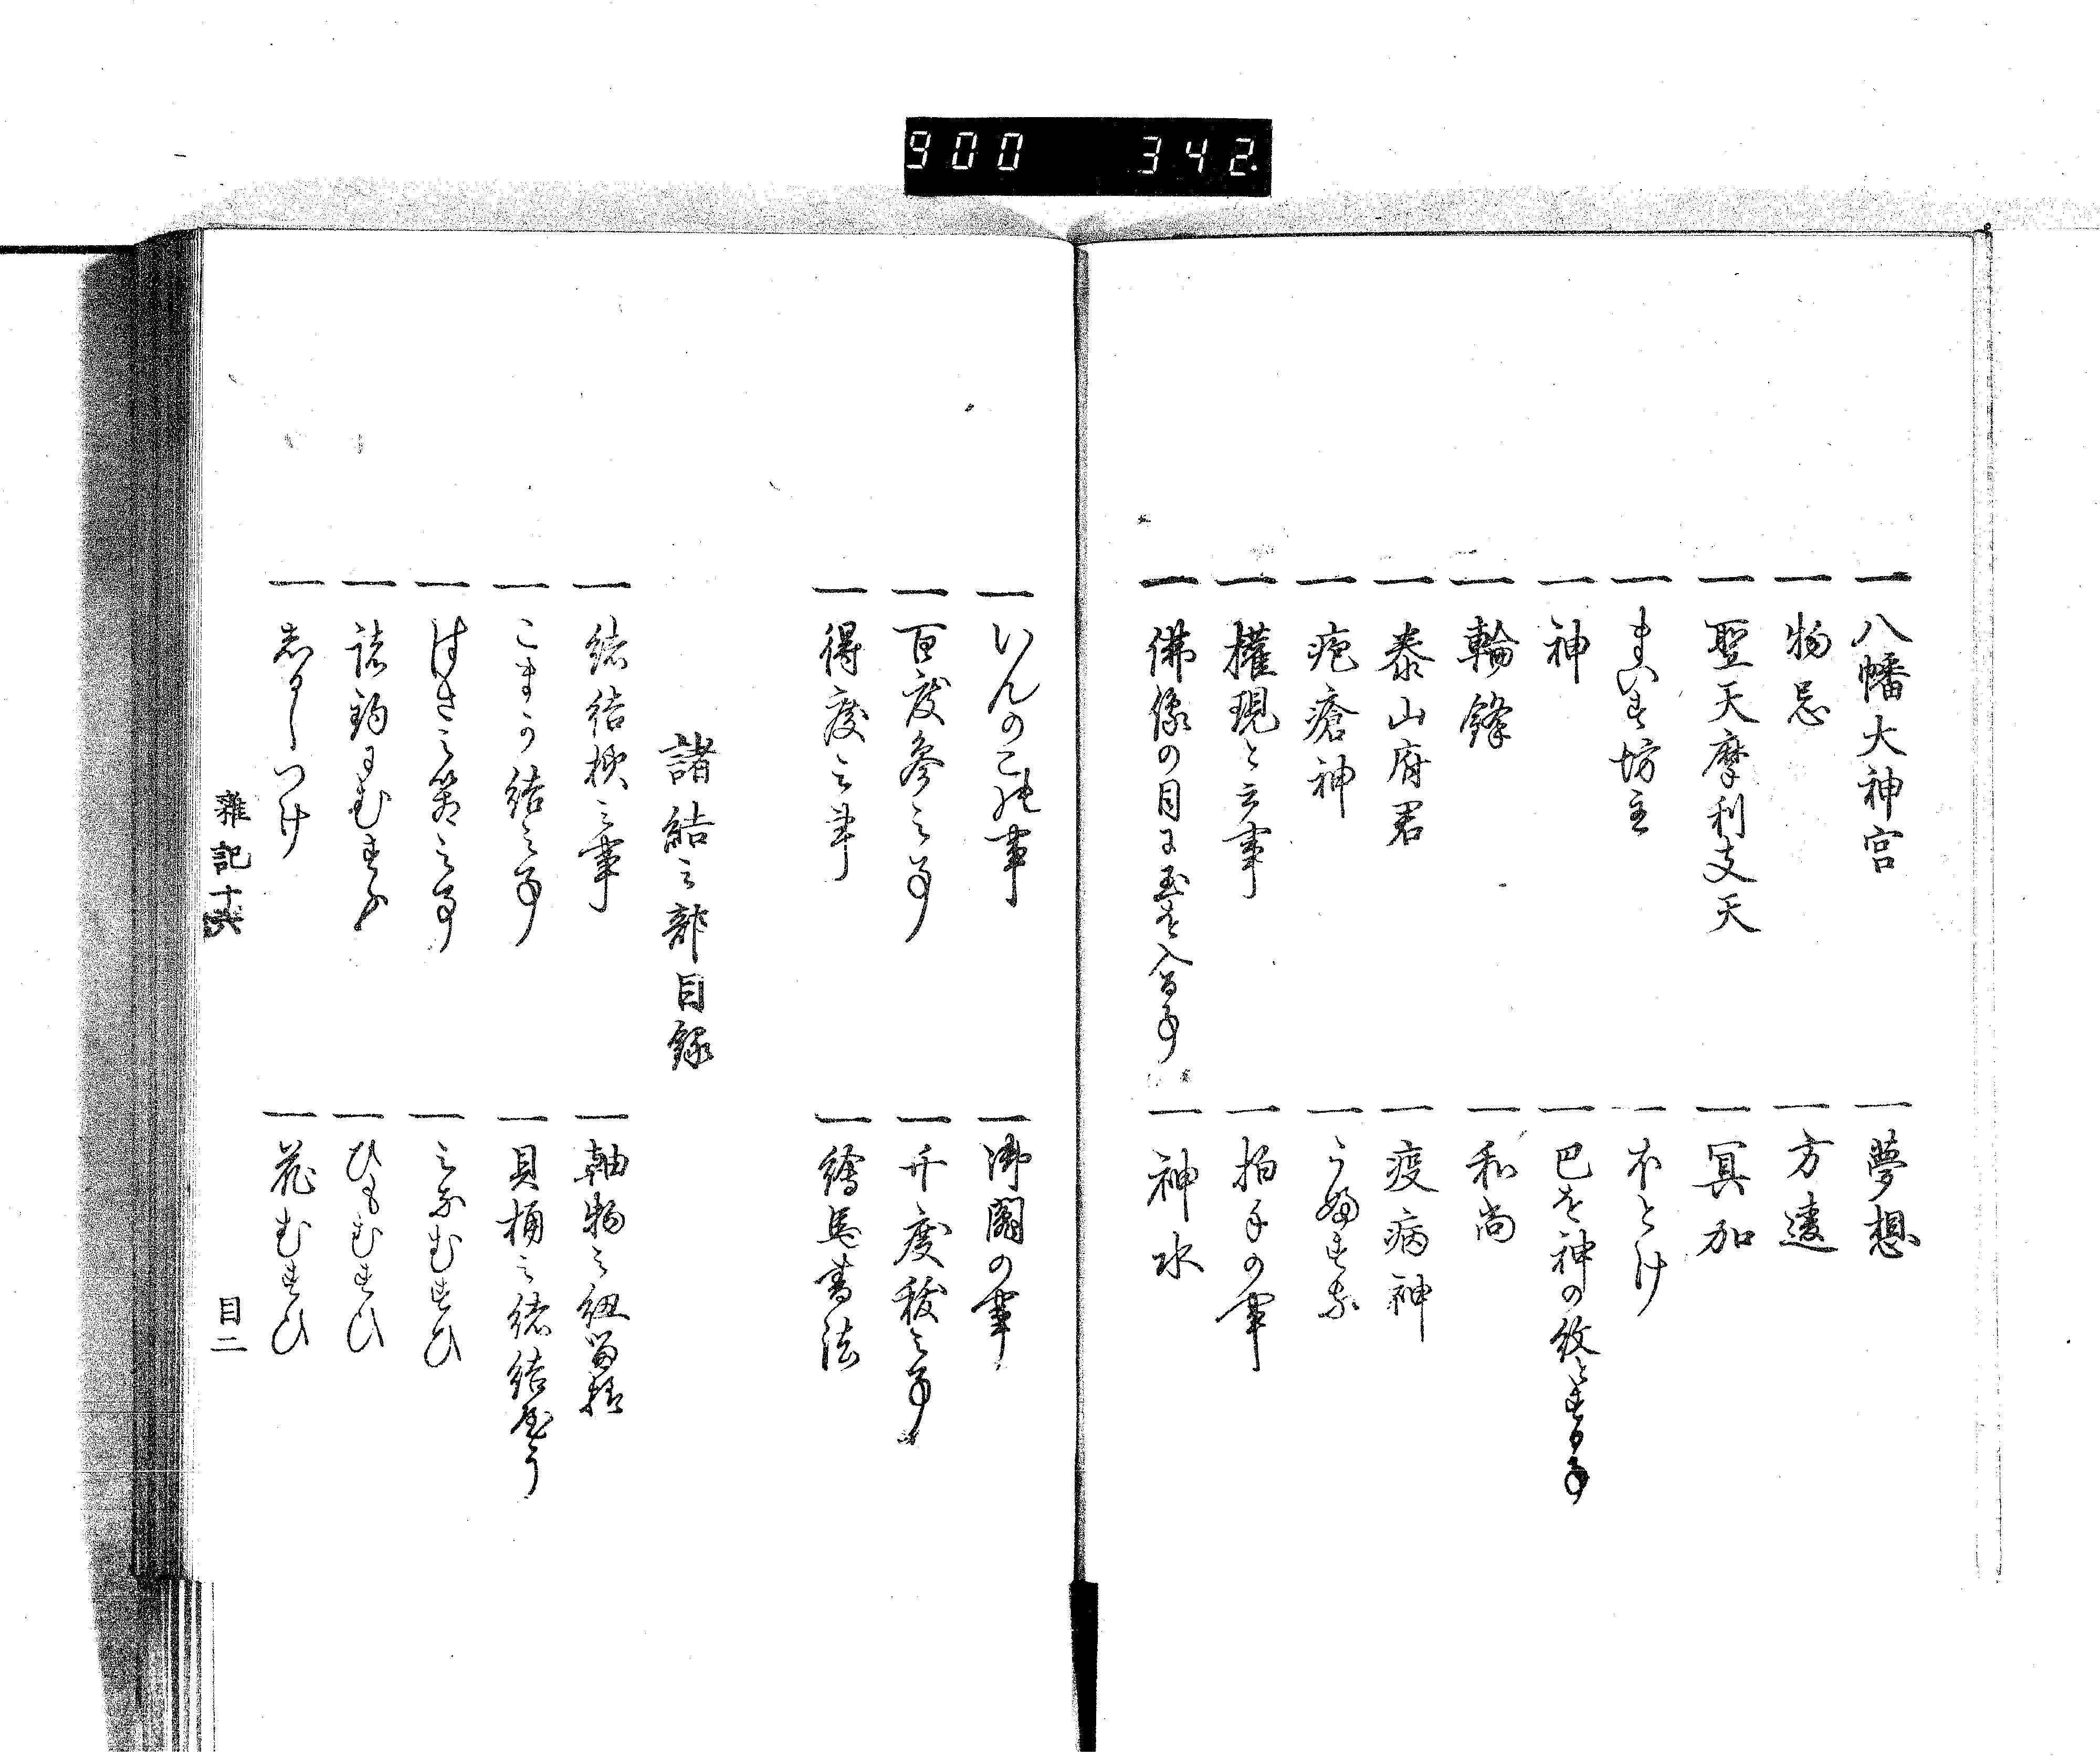 900 342.
一 八幡大神宮 一 夢想
一 物忌 一 方違
一 聖天摩利支天 一 冥加
一 まいす坊主 一 ほとけ
一 神 一 巴を神の紋とする事
一 輪鋒 一 和尚
一 泰山府君 一 疫病神
一 疱瘡神 一 うぶすな
一 權現と云事 一 拍手の事
一 佛像の目に玉を入る事 一 神水
一 いんのこの事 一 御䦰の事
一 百度參之事 一 千度祓之事
一 得度之事 一 繪馬書法
諸結之部目録
一 緒結様之事 一 軸物之紐留様
一 こまかう結之事 一 貝桶之緒結やう
一 はさ之事 一 になむすひ
一 むすふ 一 ひもむすひ
一 しるしつけ 一 花むすひ
雜記十六 目二